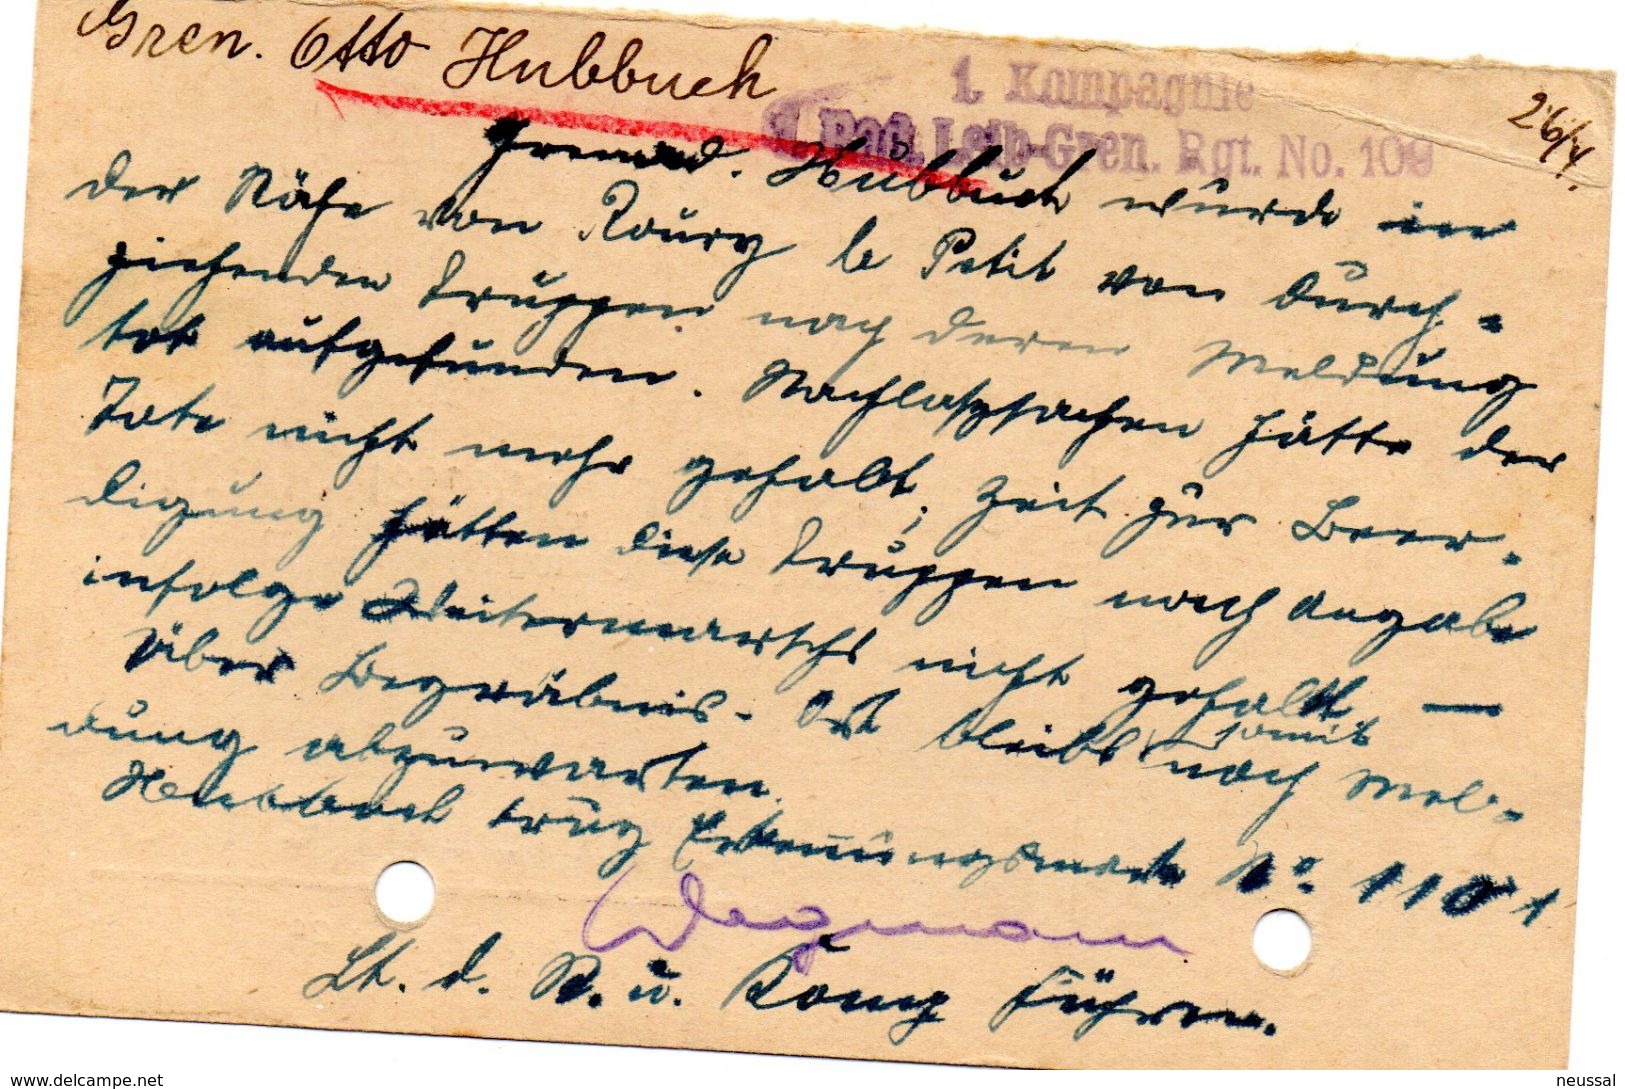 Gren. Otto Hubbuch
1. Kompagnie
1. Bad. Leib-Gren. Rgt. No. 109
26/4.
Grenad. Hubbuch wurde in
der Nähe von Rouvy le Petit von durch-
ziehenden Truppen nach deren Meldung
tot aufgefunden. Nachlaßsachen hätte der
Tote nicht mehr gehabt; Zeit zur Beer-
digung hätten diese Truppen nach Angabe
infolge Weitermarschs nicht gehabt —
Über Begräbnis-Ort bleibt somit noch Mel-
dung abzuwarten.
Hubbuch trug Erkennungsmarke No. 1101
Lt. d. R. u. Komp Führer.
www.delcampe.net
neussal